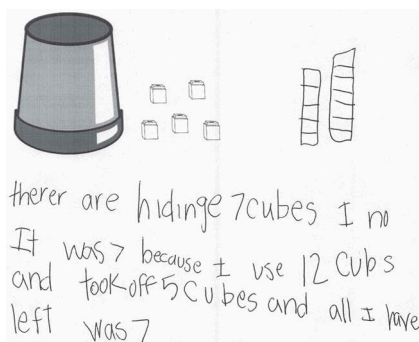 therer are hidinge 7cubes I no
It was 7 because I use 12 Cubs
and took off 5 Cubes and all I have
left was 7